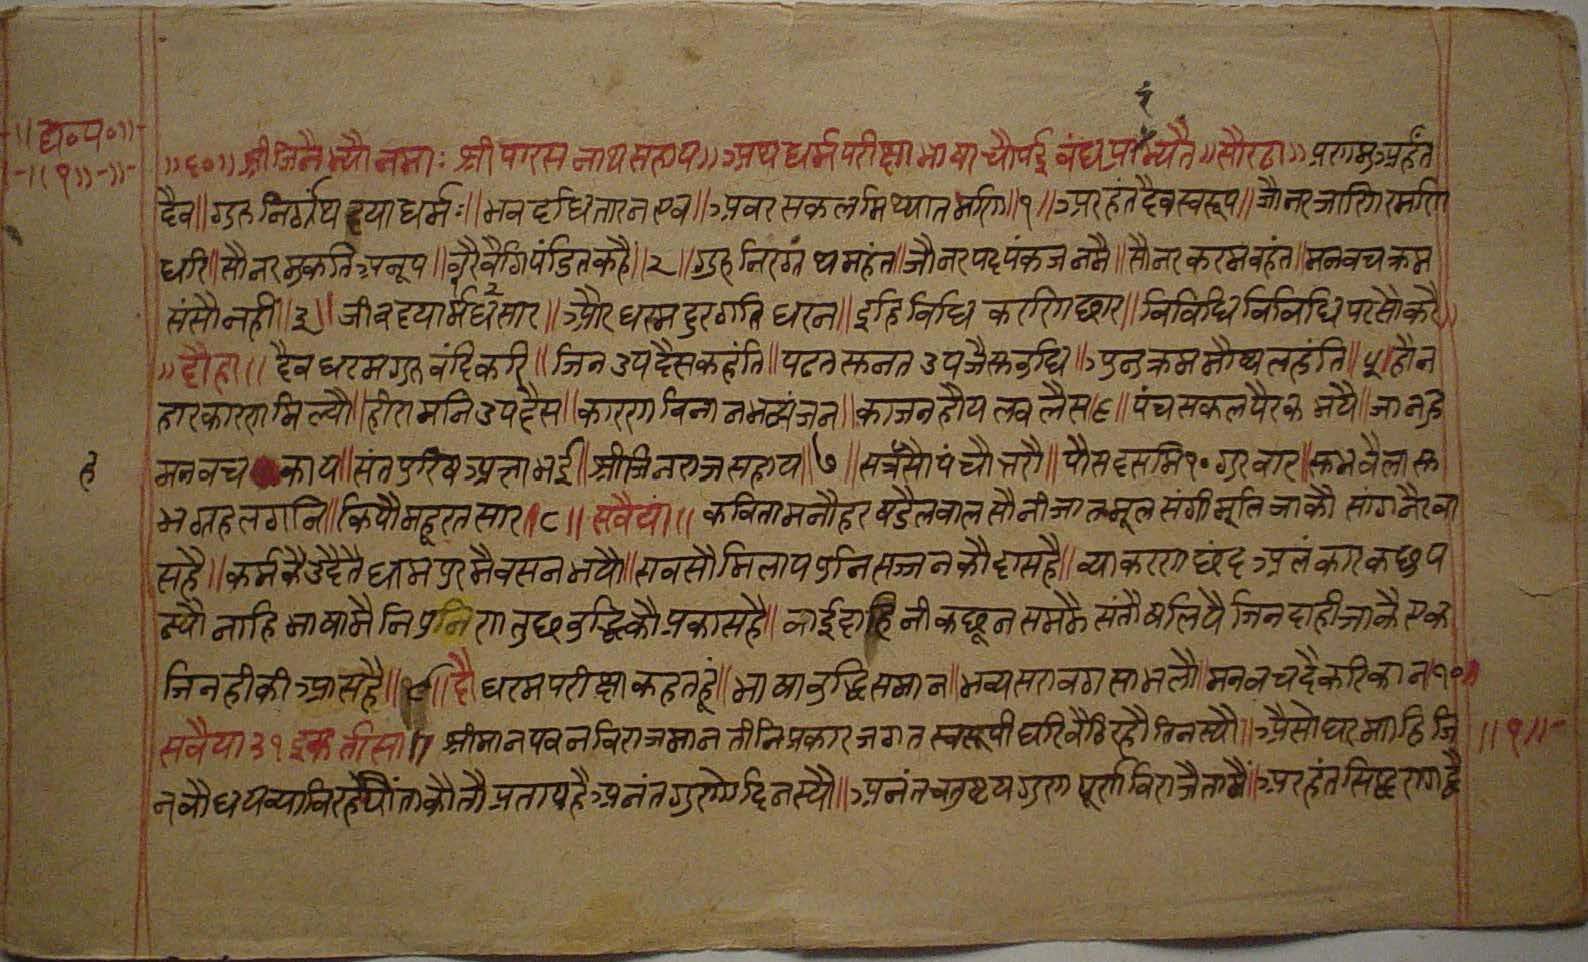 ॥ध॰प॰॥
॥१॥
॥६०॥ श्री जिनैभ्यौ नमाः श्री पारसनाथ सहाय॥ अथ धर्म परीक्षा भाषा चौपई बंध प्रारंभ्यैत॥ सौरठा॥ प्रणमु अर्हंत
दैव॥ गुरु निर्ग्रंथ दया धर्मः॥ भव दधि तारन एव॥ अवर सकल मिथ्यात भणि॥१॥ अरहंत दैव स्वरूप॥ जौ नर जाणि र मणि
धरि॥ सौ नर मुकति अनूप॥ वैगि पंडित कहै॥२॥ गुरु निरग्रंथ महंत॥ जौ नर पद पंकज नमै॥ सौ नर करम वहंत॥ मन वच क्रम
संसौ नही॥३॥ जीव दया धर्म सार॥ और धरम दुरगति धरन॥ इहि विधि करणि छार॥ विविधि विविधि परसौ करै॥
॥दौहा॥ दैव धरम गुरु वंदि करि॥ जिन उपदैस कहंति॥ पढत सुनत उपजै सुबुधि॥ अनुक्रम मौष्य लहंति॥५॥ हौन
हार कारण मिल्यौ॥ हीरामनि उपदैस॥ कारण विना न भव्य जन॥ काज न हौय लवलैस॥६॥ पंच सकल यैरक भयै॥ जानहु
मन वच काय॥ संत पुरिष अज्ञा भई॥ श्री जिनराज सहाय॥७॥ सत्रैसौ पंचौत्तरौ॥ पौस दसमि १० गुरवार॥ सुभ वैला सु
भ ग्रह लगनि॥ कियौ महूरत सार॥८॥ सवैयां॥ कविता मनौहर षंडैलवाल सौनी जात मूल संगी मूलि जाकौ सांगानैर वा
स है॥ कर्म कै उदै तै धामपुर मै वसन भयौ॥ सब सौ मिलाप पुनि सज्जन कौ दास है॥ व्याकरण छंद अलंकार कछु प
ढ्यौ नाहि भाषा मै निपुनि ण तुछ बुद्धि कौ प्रकास है॥ वाई दाहिनी कछू न समझै संतौष लियै जिन दाही जाकै एक
जिन ही की आस है॥९॥ दौ॥ धरम परीक्षा कहत हूं॥ भाषा बुद्धि समान॥ भव्य सरावग सांभलौ॥ मन वच दै करि कान॥१०॥
सवैया ३१ इकतीसा॥ श्रीमान पवन विराजमान तीनि प्रकार जगत स्वरूपी घरि वैठि रहौ तिनस्यौ॥ अैसो घर माहि जि
न बौध पय व्यावि रहै यौं ताकौ तौ प्रताप है अनंत गुण दिनस्यौ॥ अनंत चतुष्टय गुण पूर्ण विराजै तामैं॥ अरहंत सिद्ध राग द्वै
॥१॥